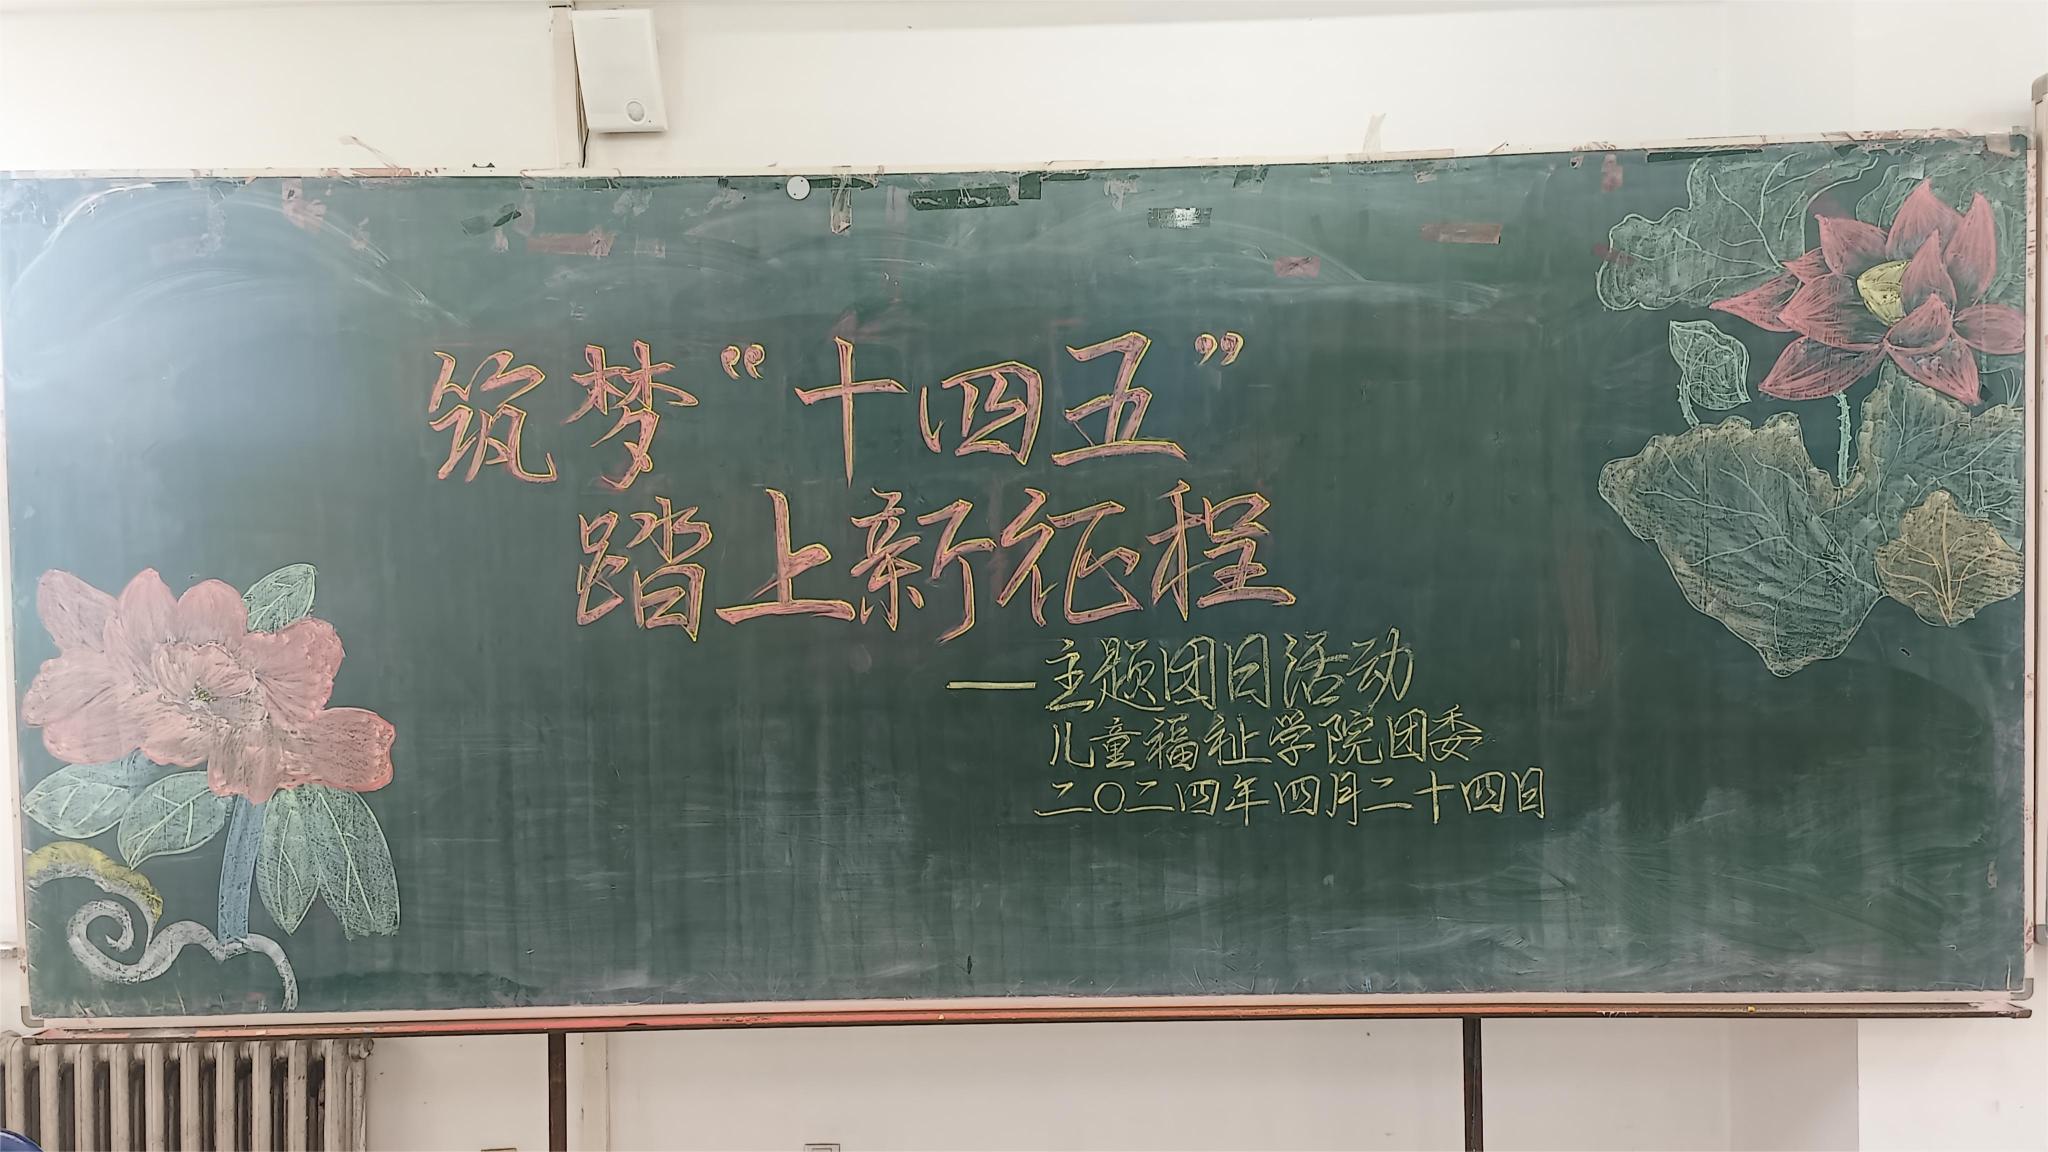 筑梦“十四五”
踏上新征程
——主题团日活动
儿童福祉学院团委
二〇二四年四月二十四日